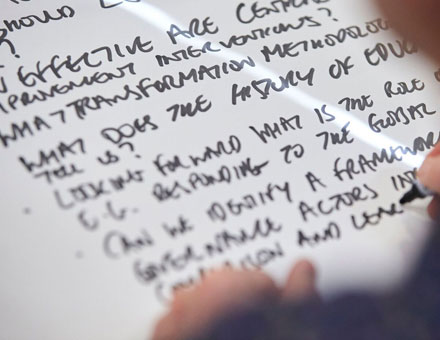 SHOULD
?
EFFECTIVE ARE CENTR
IMPROVEMENT INTERVENTIONS?
WHAT TRANSFORMATION METHODOLO
WHAT DOES THE HISTORY OF EDUC
TELL US?
· LOOKING FORWARD WHAT IS THE ROLE
E.G. RESPONDING TO THE GLOBAL
· CAN WE IDENTIFY A FRAMEWOR
GOVERNANCE ACTORS INT
AND